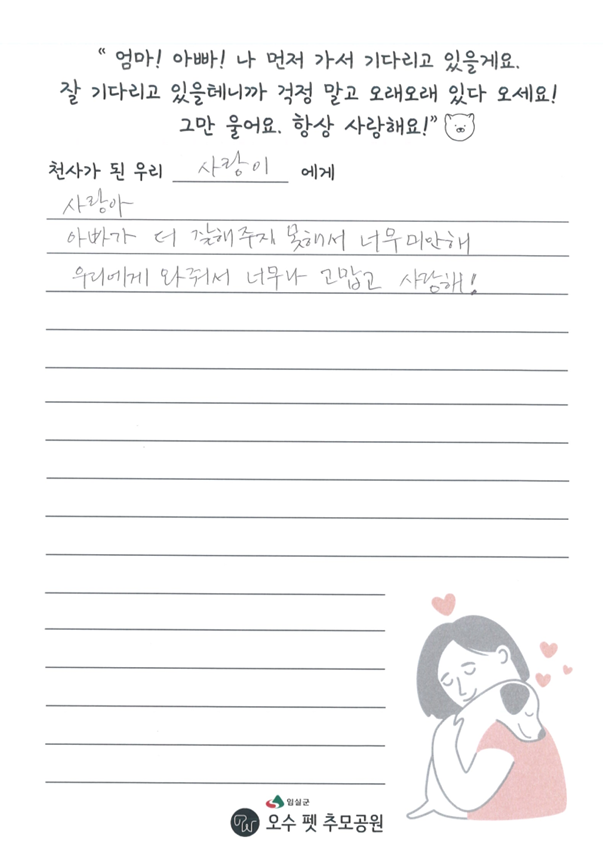 “ 엄마! 아빠! 나 먼저 가서 기다리고 있을게요.
잘 기다리고 있을테니까 걱정 말고 오래오래 있다 오세요!
그만 울어요. 항상 사랑해요!”
천사가 된 우리 사랑이 에게
사랑아
아빠가 더 잘해주지 못해서 너무 미안해
우리에게 와줘서 너무나 고맙고 사랑해!
임실군
PW 오수 펫 추모공원